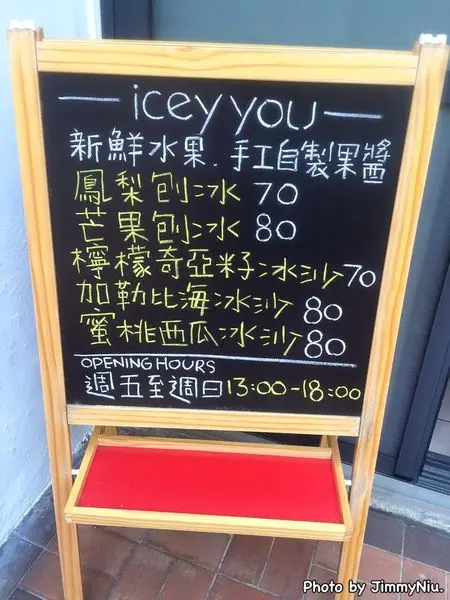 icey you
新鮮水果.手工自製果醬
鳳梨刨冰 70
芒果刨冰 80
檸檬奇亞籽冰沙 70
加勒比海冰沙 80
蜜桃西瓜冰沙 80
OPENING HOURS
週五至週日 13:00-18:00
Photo by JimmyNiu.